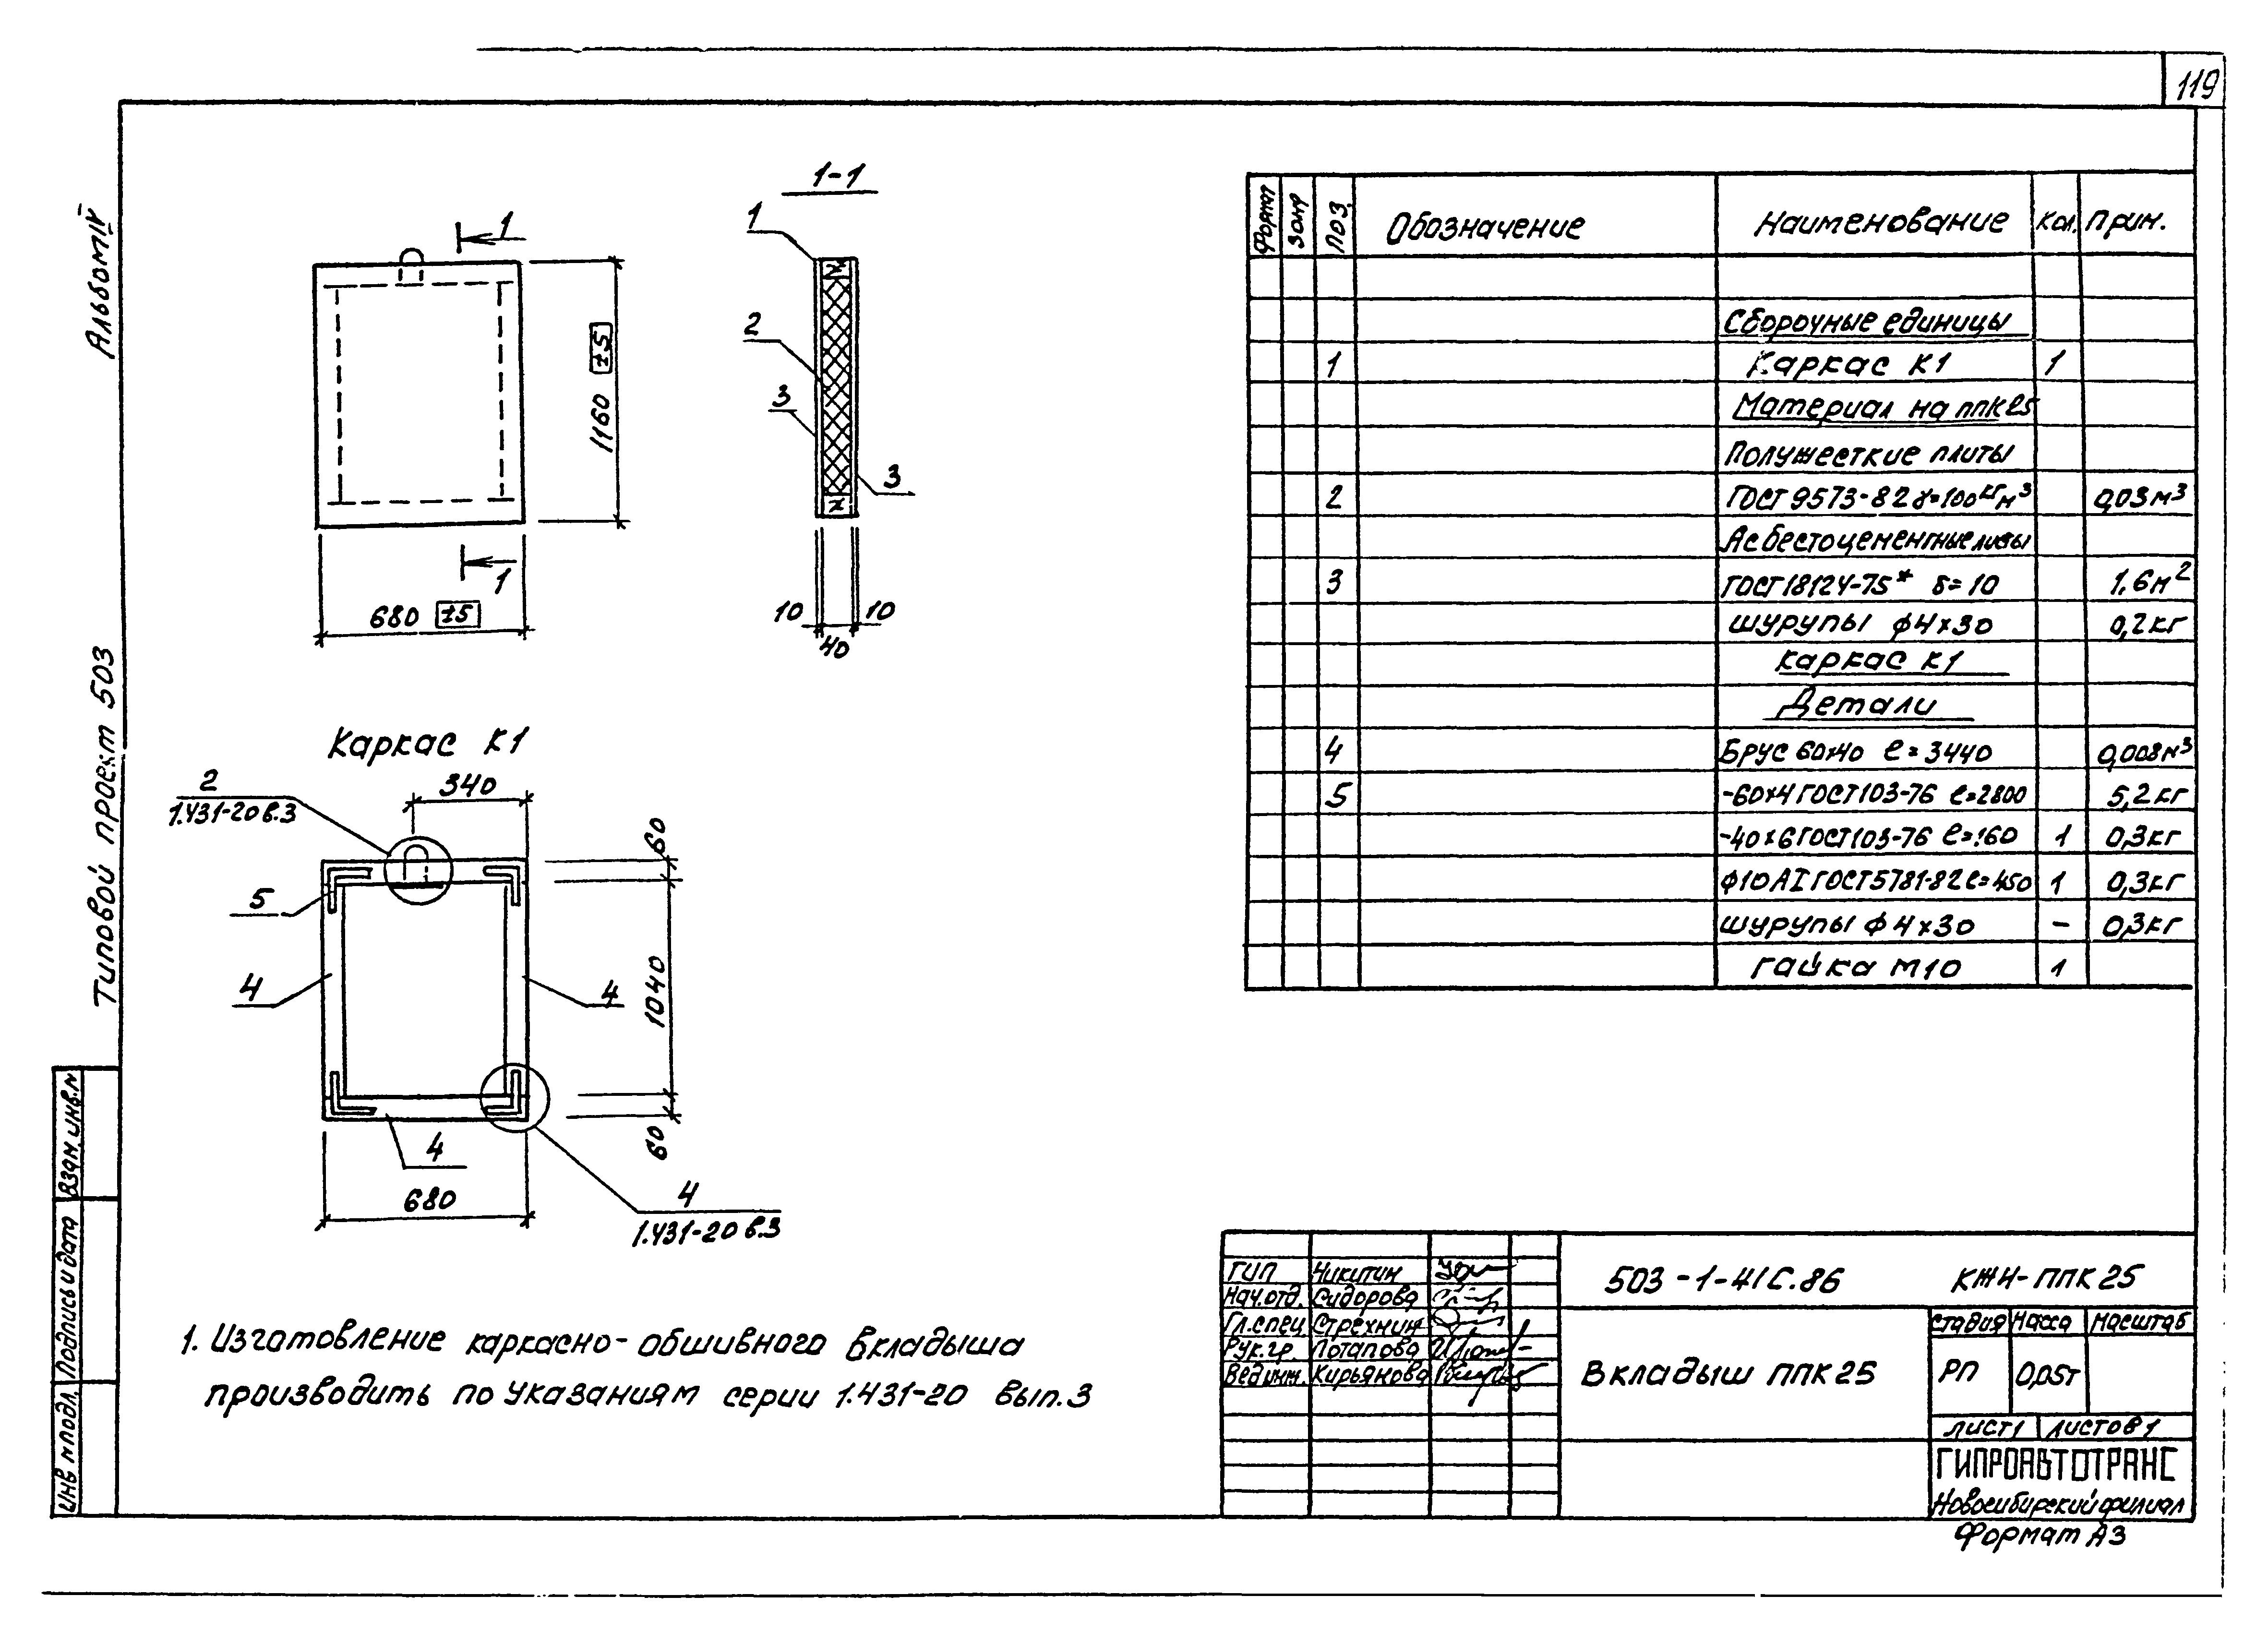 119
Альбом IV
Типовой проект 503
Взам. инв. N
Подпись и дата
Инв N подл.
1
1
1160 ±5
680 ±5
1-1
1
2
3
3
10
40
10
Каркас К1
2
1.431-20 в.3
340
60
5
4
4
1040
60
4
680
4
1.431-20 в.3
1. Изготовление каркасно-обшивного вкладыша
производить по указаниям серии 1.431-20 вып.3
Формат Зона Поз. Обозначение Наименование Кол. Прим.
Сборочные единицы
1 Каркас К1 1
Материал на ППК25
Полужесткие плиты
2 ГОСТ 9573-82 γ=100 кг/м³ 0,03м³
Асбестоцементные листы
3 ГОСТ 18124-75* δ=10 1.6м²
шурупы ф4х30 0,2кг
Каркас К1
Детали
4 Брус 60х40 ℓ=3440 0,008м³
5 -60х4 ГОСТ 103-76 ℓ=2800 5,2кг
-40х6 ГОСТ 103-76 ℓ=160 1 0,3кг
ф10АI ГОСТ 5781-82 ℓ=450 1 0,3кг
шурупы ф4х30 - 0,3кг
гайка М10 1
ГИП Никитин
Нач.отд. Сидорова
Гл.спец Стрехнин
Рук.гр. Потапова
Вед.инж. Кирьянова
503-1-41с.86 КЖИ-ППК25
Вкладыш ППК25
Стадия Масса Масштаб
РП 0,05т
Лист 1 Листов 1
ГИПРОАВТОТРАНС
Новосибирский филиал
Формат А3